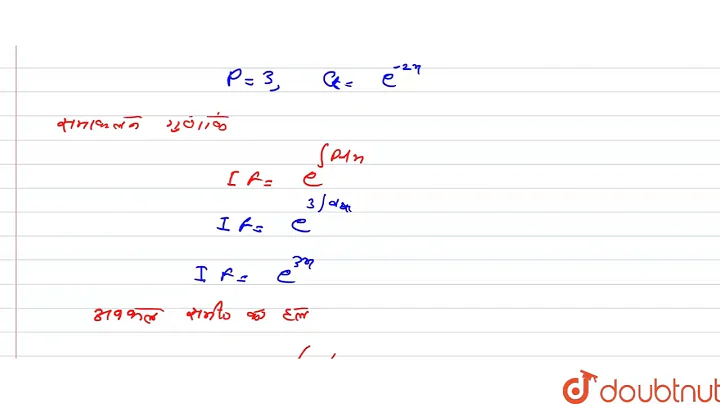 P = 3, Q = e^{-2x}
समाकलन गुणांक
I F = e^{∫Pdx}
I F = e^{3∫dx}
I F = e^{3x}
अवकल समी० का हल
doubtnut